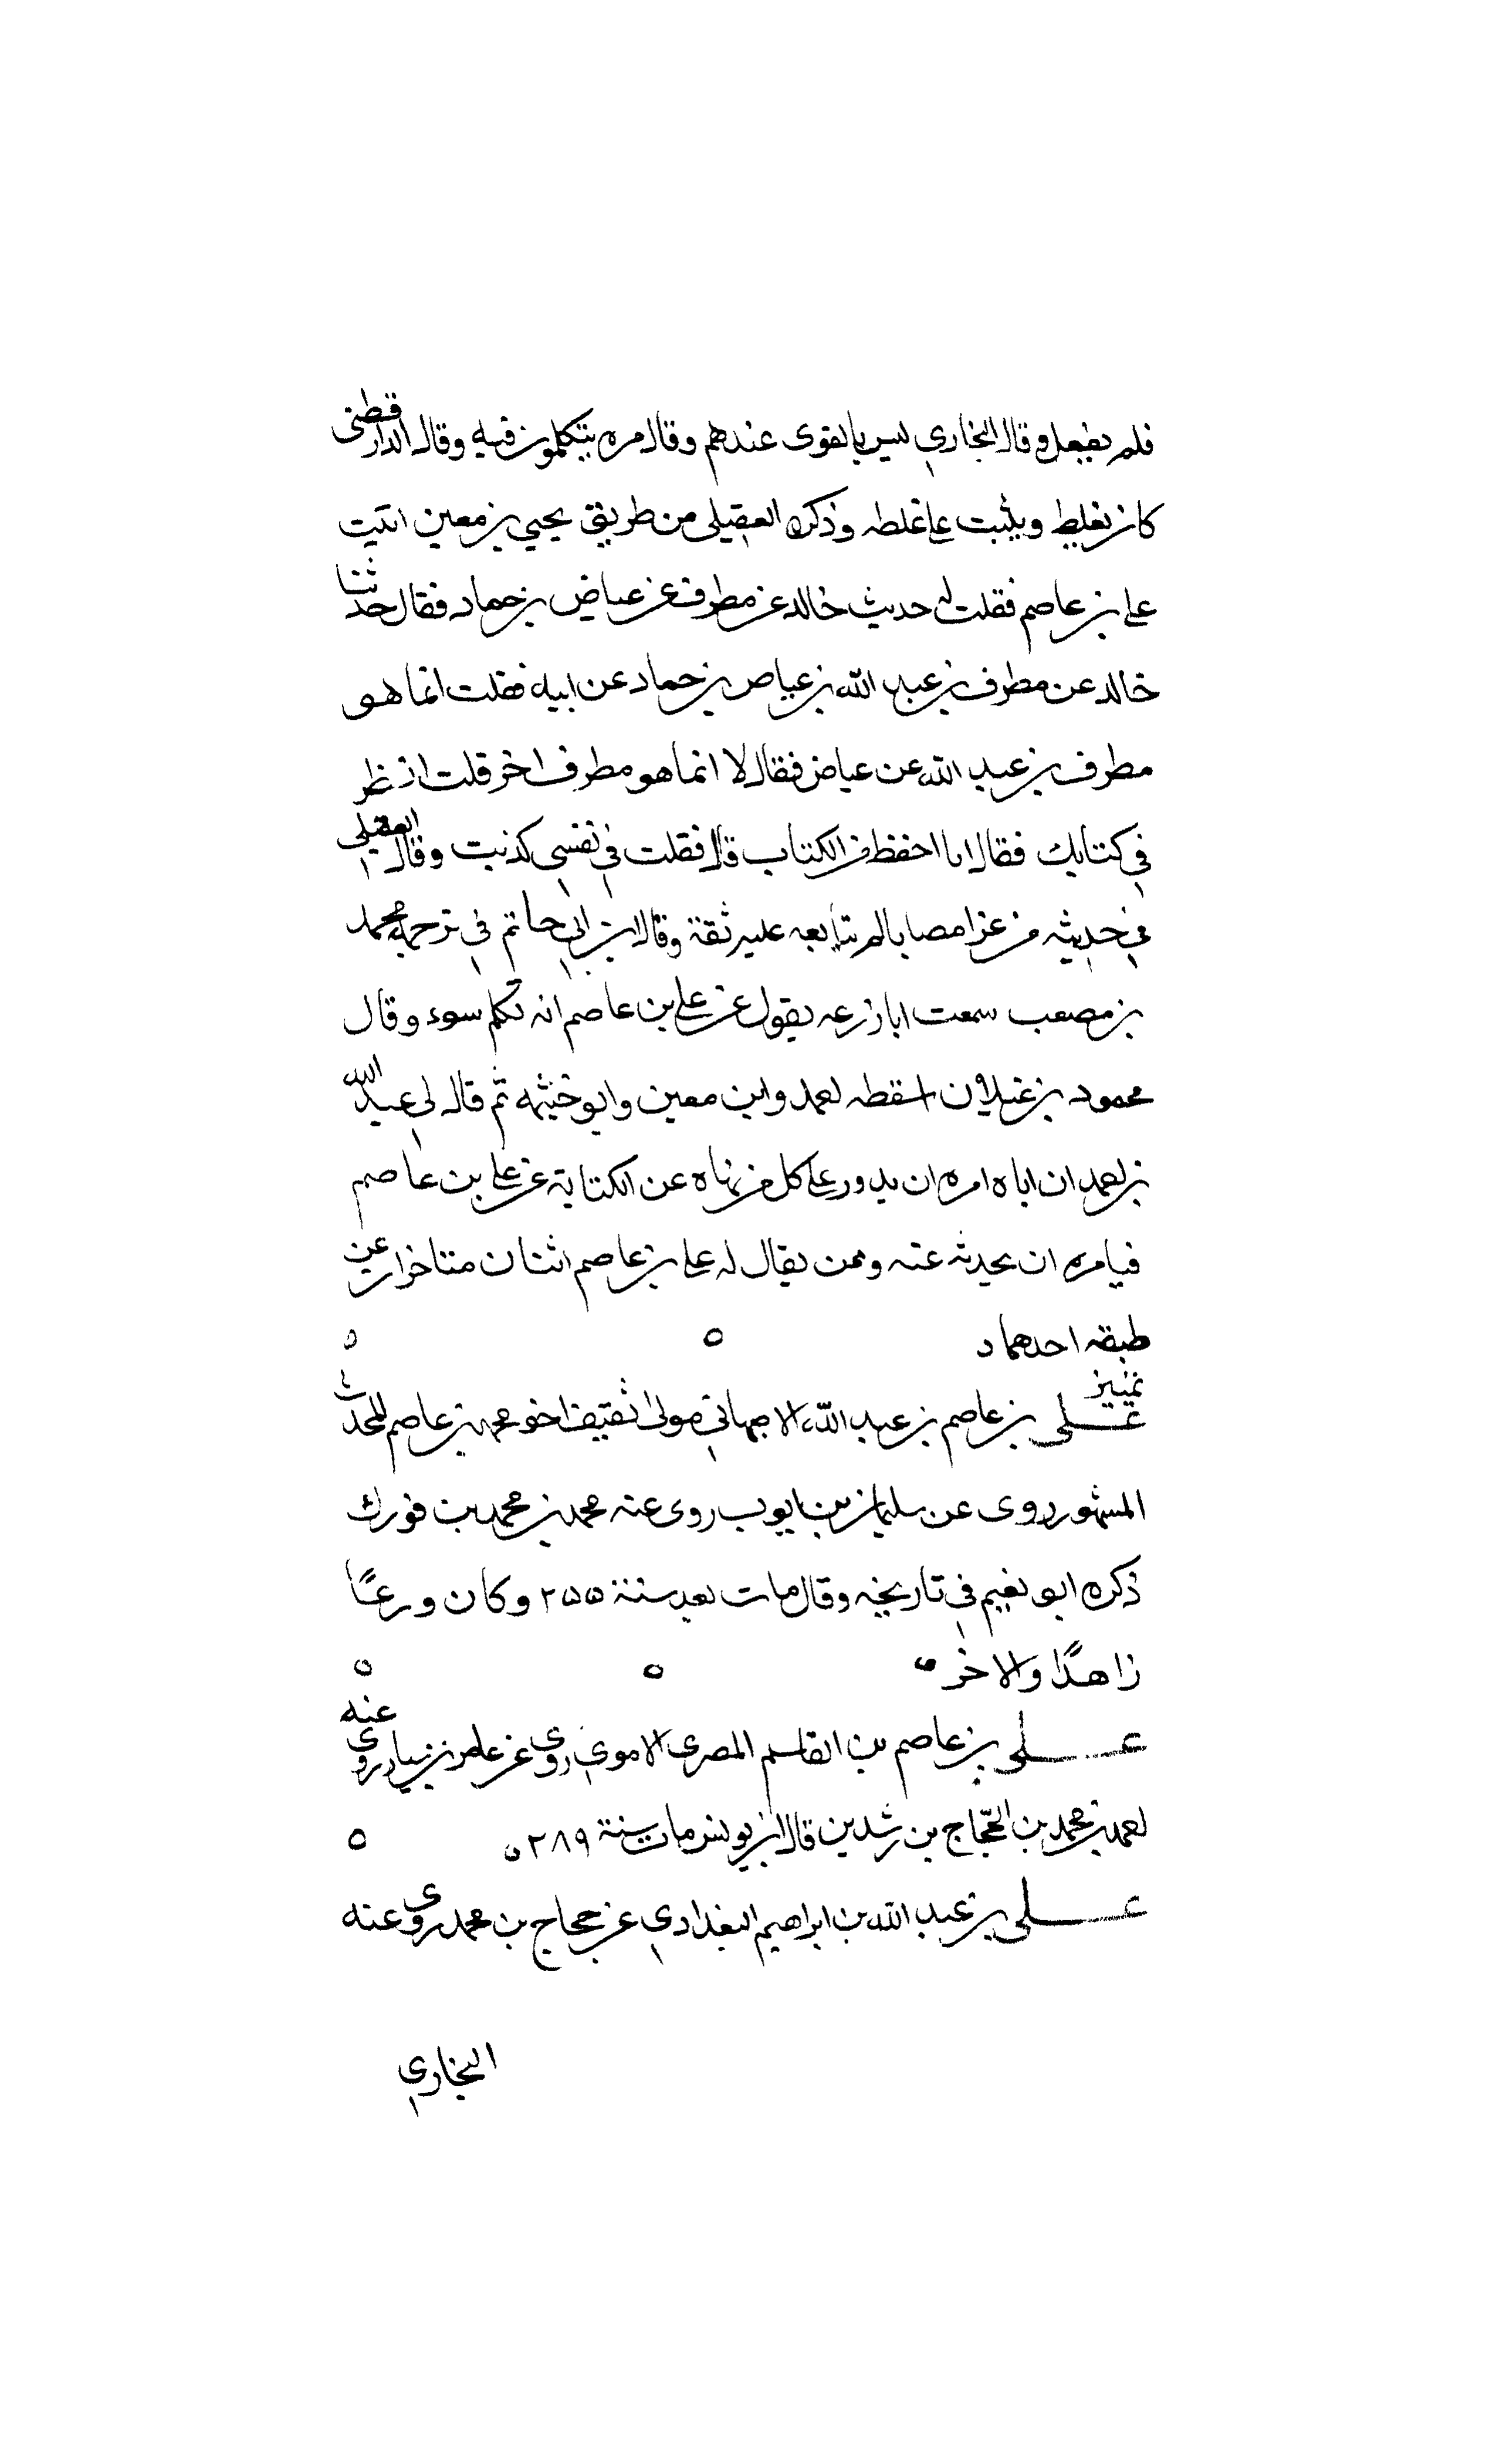 فلم يفعل وقال البخاري ليس بالقوى عندهم وقال مره يتكلمون فيه وقال الدارقطنى
كان يغلط ويثبت على غلطه وذكره العقيلى من طريق يحيي بن معين اتيت
على بن عاصم فقلت له حديث خالد عن مطرف عن عياض بن حماد فقال حدثنا
خالد عن مطرف بن عبد الله بن عياض بن حماد عن ابيه فقلت انما هو
مطرف بن عبد الله عن عياض فقال لا انما هو مطرف اخر قلت انظر
في كتابك فقال انا احفظ من الكتاب قال فقلت في نفسي كذبت وقال العقيلي
في حديثه من عزا مصابا لم يتابعه عليه ثقة وقال ابن ابي حاتم في ترجمة محمد
بن مصعب سمعت ابا زرعه يقول عن علي بن عاصم انه تكلم سوء وقال
محمود بن غيلان اسقطه احمد وابن معين وابو خيثمه ثم قال لي عبد الله
بن احمد ان اباه امره ان يدور على كل من نهاه عن الكتابة عن على بن عاصم
فيامره ان يحدثه عنه وممن يقال له على بن عاصم اثنان متاخران عن
طبقه احدهما
تمييز
على بن عاصم بن عبد الله الاصبهاني مولى ثقيف اخو محمد بن عاصم المحدث
المشهور روى عن سليمان بن ايوب روى عنه محمد بن محمد بن فورك
ذكره ابو نعيم في تاريخه وقال مات بعد سنة ٢٥٥ وكان ورعًا
زاهدًا والاخر
على بن عاصم بن القاسم المصرى الاموي روى عن عامر بن سيار روى عنه
احمد بن محمد بن الحجّاج بن رشدين قال ابن يونس مات سنة ٢٨٩
على بن عبد الله بن ابراهيم البغدادي عن حجاج بن محمد روى عنه
البخاري